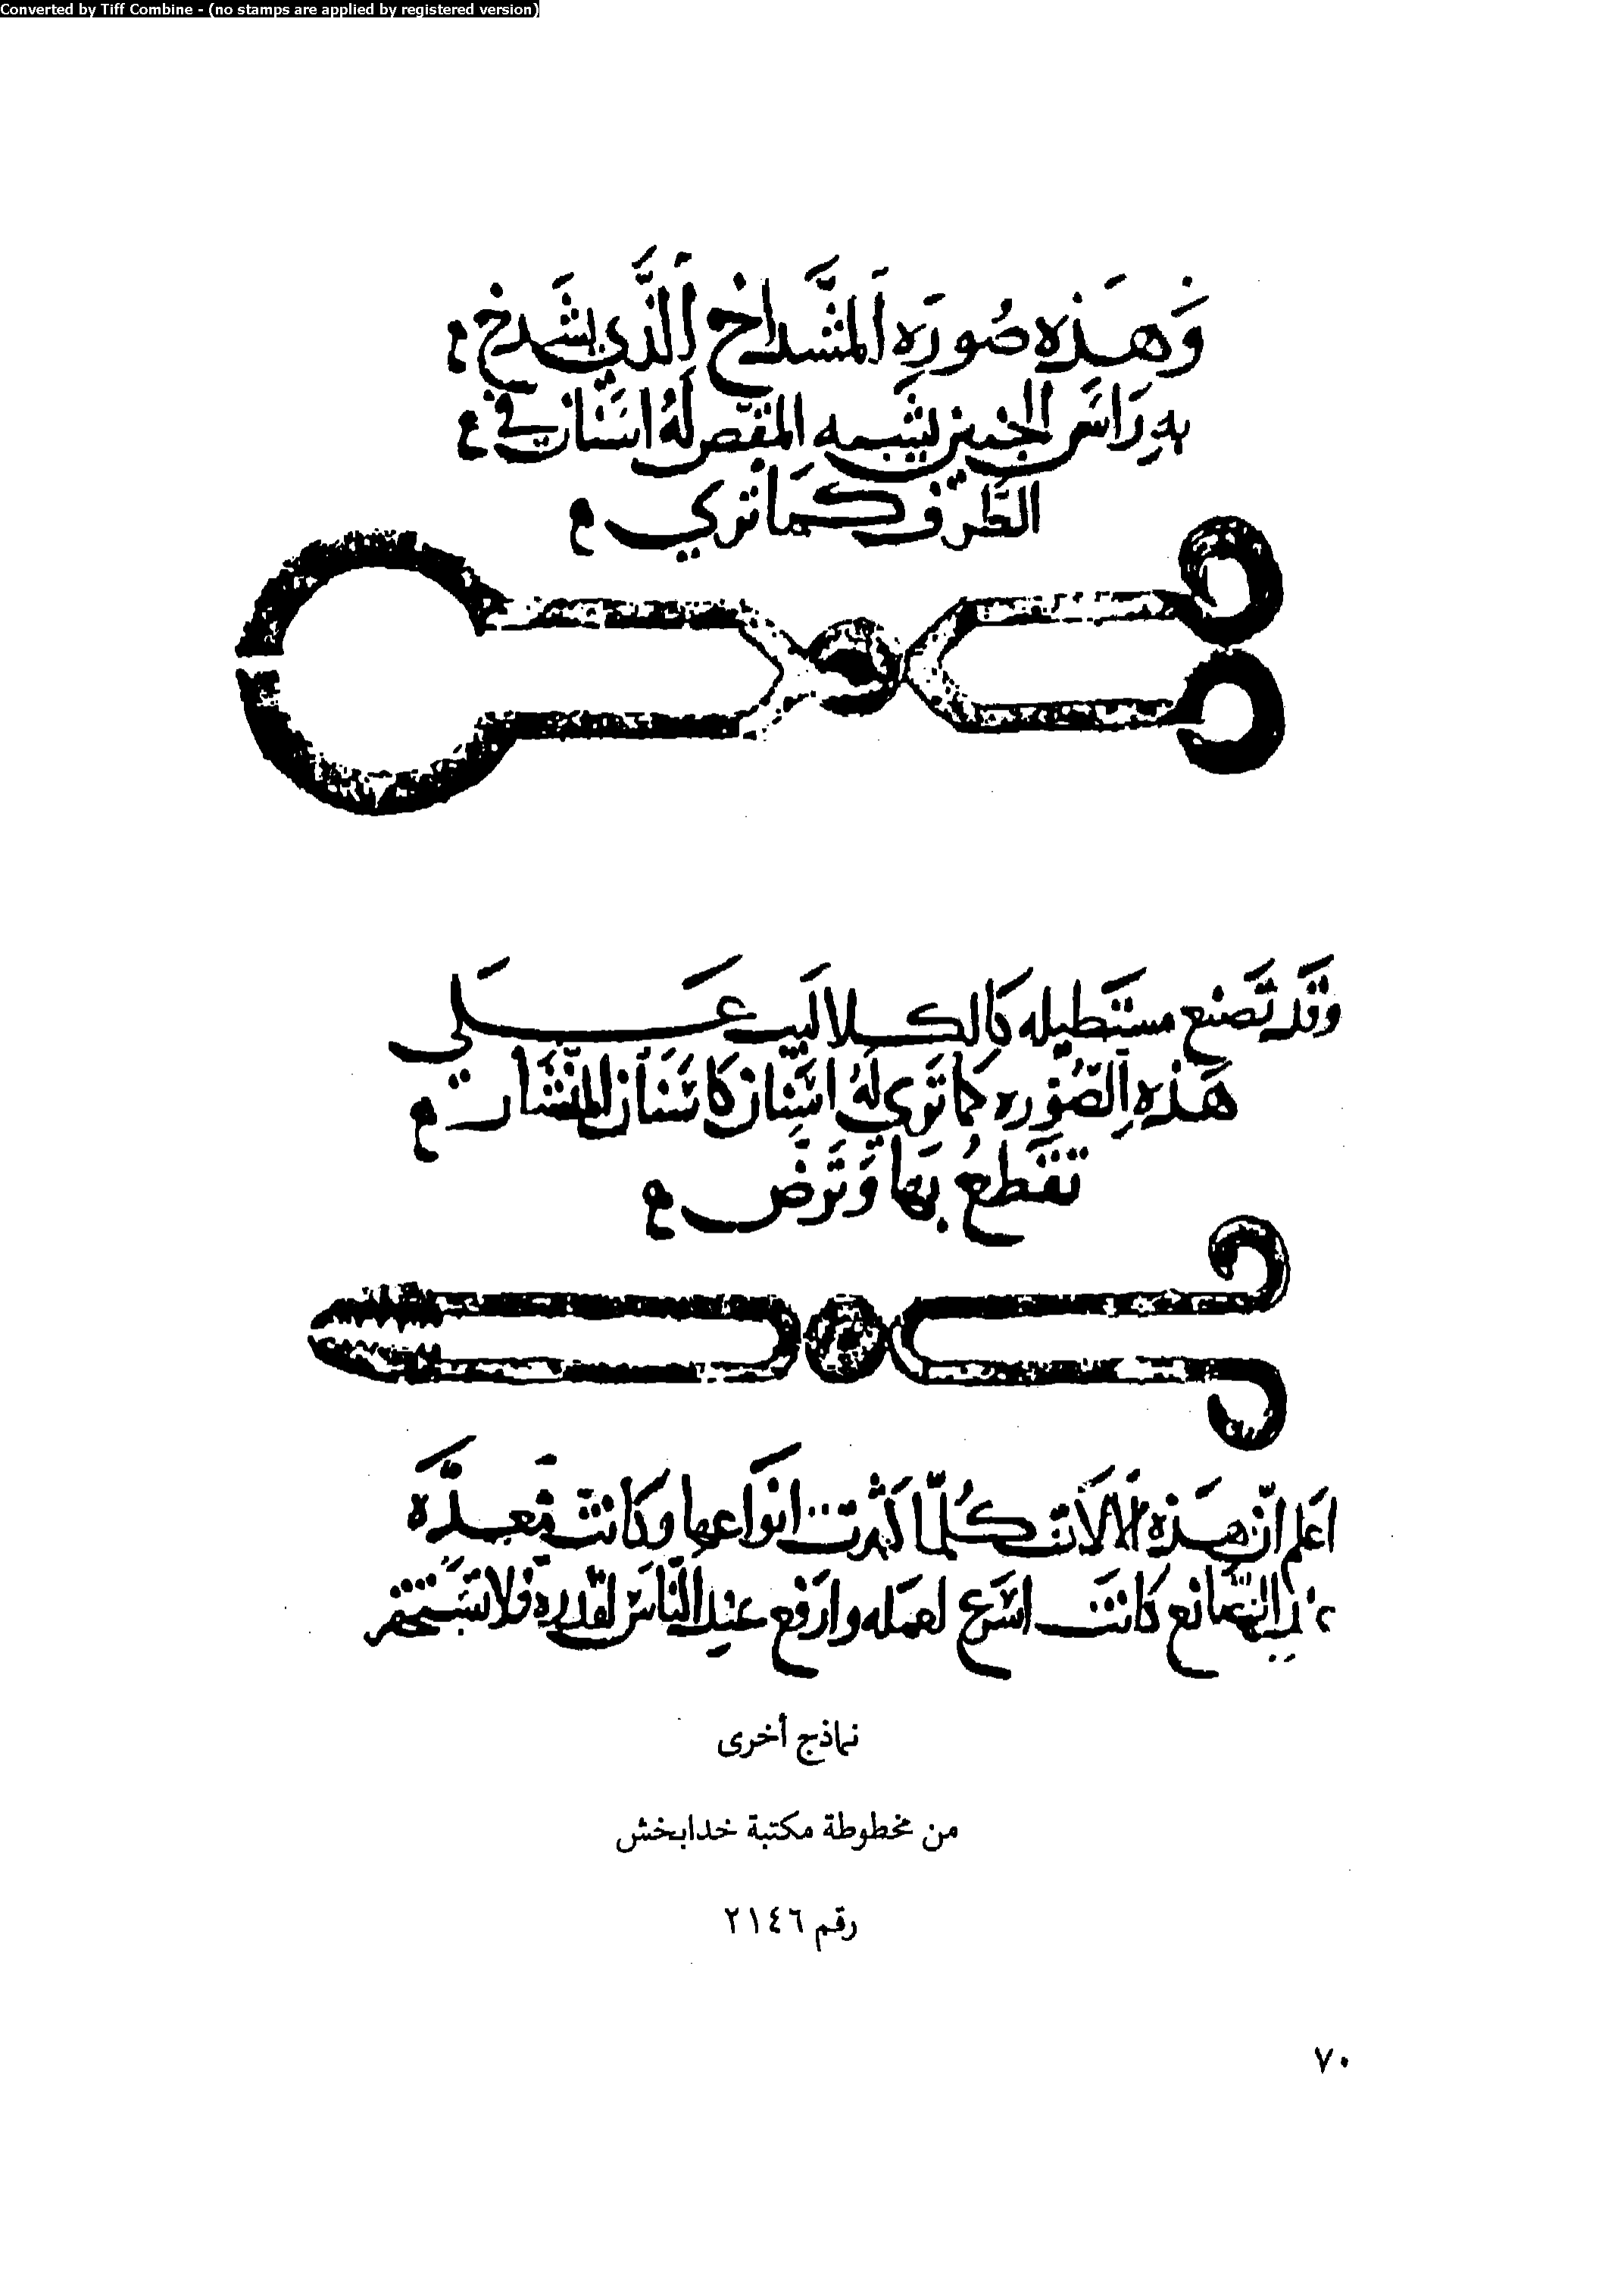 Converted by Tiff Combine - (no stamps are applied by registered version)
وَهَذِه صُورَه المشَداخ الَّذي يشدَخ
بهِ رَاسَ الجنين يشبه المقصّ لهُ اسنَان في
الطَرَف كمَا تري
وَقَد تصنَع مستَطيله كَالكلاليب عَلَي
هَذِهِ الصُّورَه كمَا تَرَي لَهُ اسنَان كَاسنَان المنشَار
تقَطعُ بهَا وَتَرض
اعَلم انّ هَذِه الالاتَ كُلّمَا كَثُرت انوَاعهَا وكَانت مُعدَّه
الصَّانع كَانتَ اسَرع لعَمله وارَفع عنِد النَّاس لقَدره فلا تسَتحقر
نماذج أخرى
من مخطوطة مكتبة خدابخش
رقم ٢١٤٦
٧٠